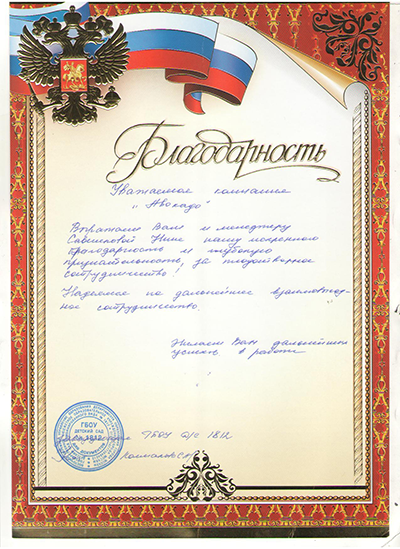 Благодарность
Уважаемая компания
"Авокадо"
Выражаем Вам и менеджеру
Савешковой Нине нашу искреннюю
благодарность и глубокую
признательность, за плодотворное
сотрудничество!
Надеемся на дальнейшее взаимовыгод-
ное сотрудничество.
Желаем Вам дальнейших
успехов в работе
ГБОУ
ДЕТСКИЙ САД
№ 1812
ГБОУ д/с 1812